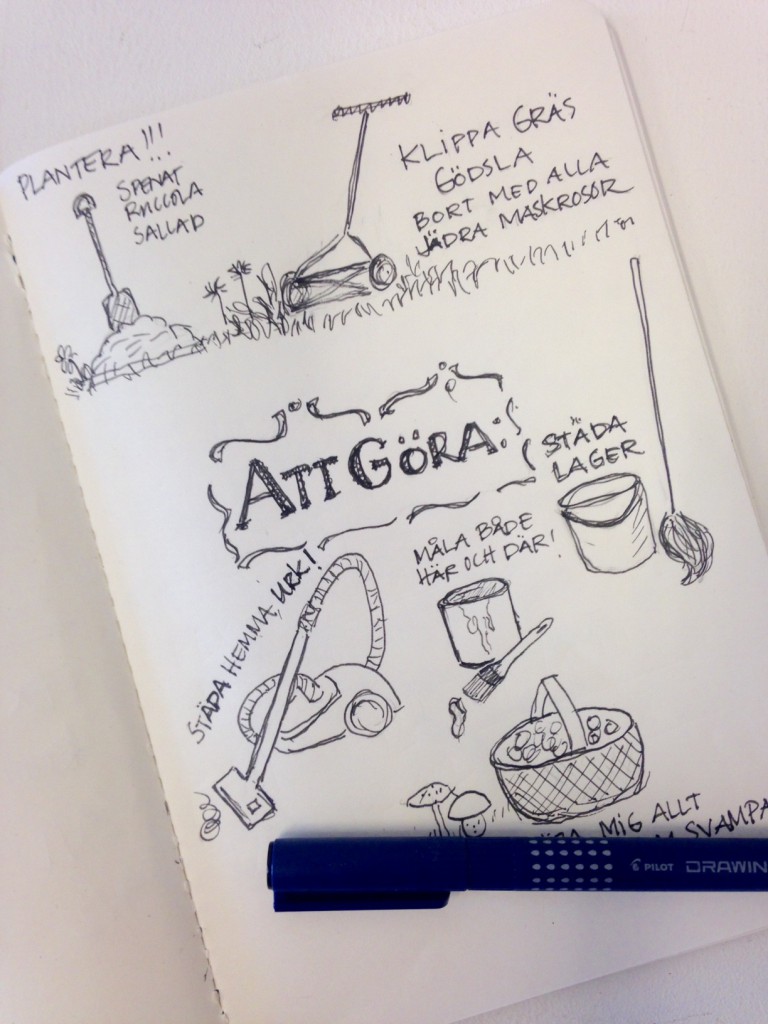 PLANTERA!!!
SPENAT
RUCCOLA
SALLAD
KLIPPA GRÄS
GÖDSLA
BORT MED ALLA
JÄDRA MASKROSOR
ATT GÖRA:
STÄDA
LAGER
MÅLA BÅDE
HÄR OCH DÄR!
STÄDA HEMMA, URK!
MIG ALLT
SVAMPA
PILOT DRAWIN